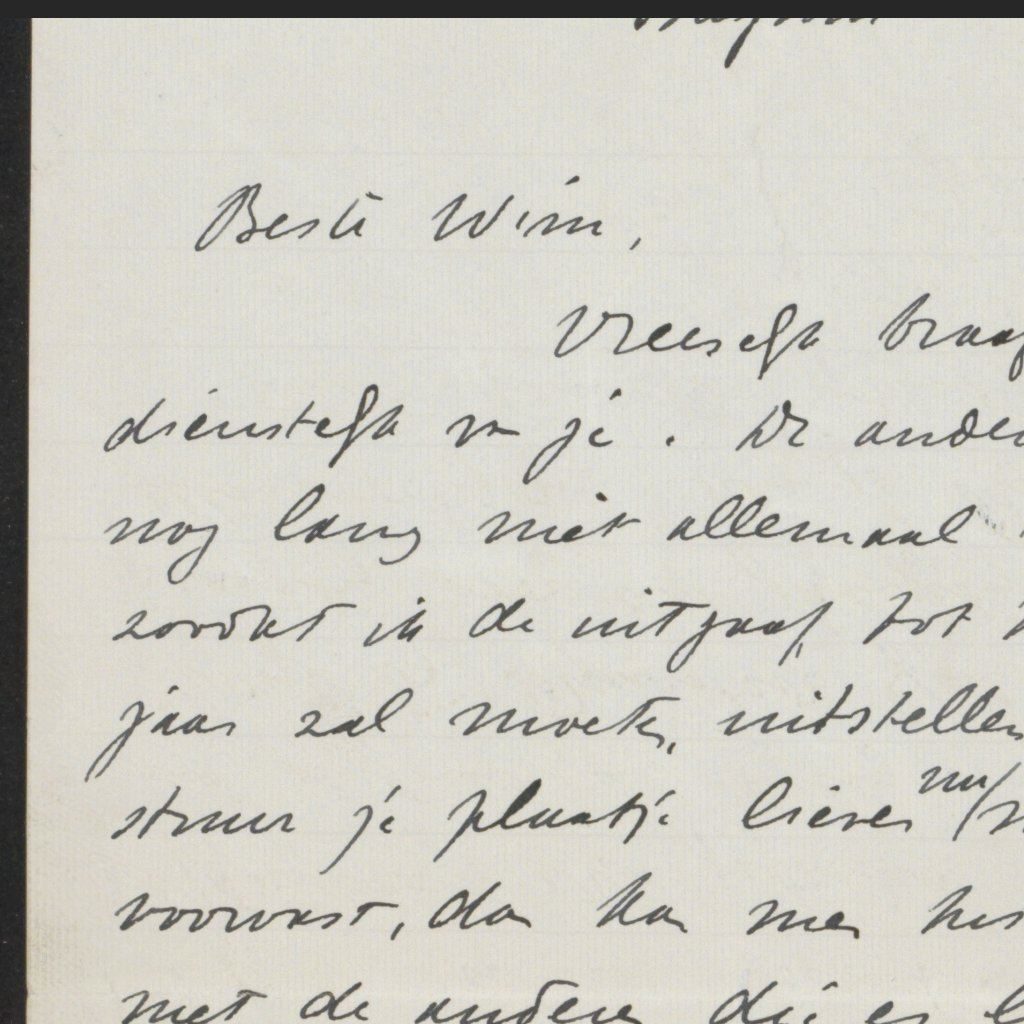 Beste Wim,
Vreeselijk
dienstelijk v. je. De
nog lang niet allemaal
zoodat ik de uitgaaf tot
jaar zal moeten uitstellen
stuur je plaatje liever nu
voorwast, dan kan men
met de andere die er